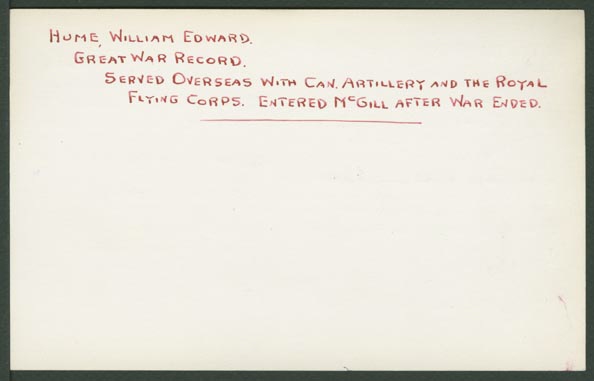 HUME, WILLIAM EDWARD.
GREAT WAR RECORD.
SERVED OVERSEAS WITH CAN. ARTILLERY AND THE ROYAL
FLYING CORPS. ENTERED MCGILL AFTER WAR ENDED.